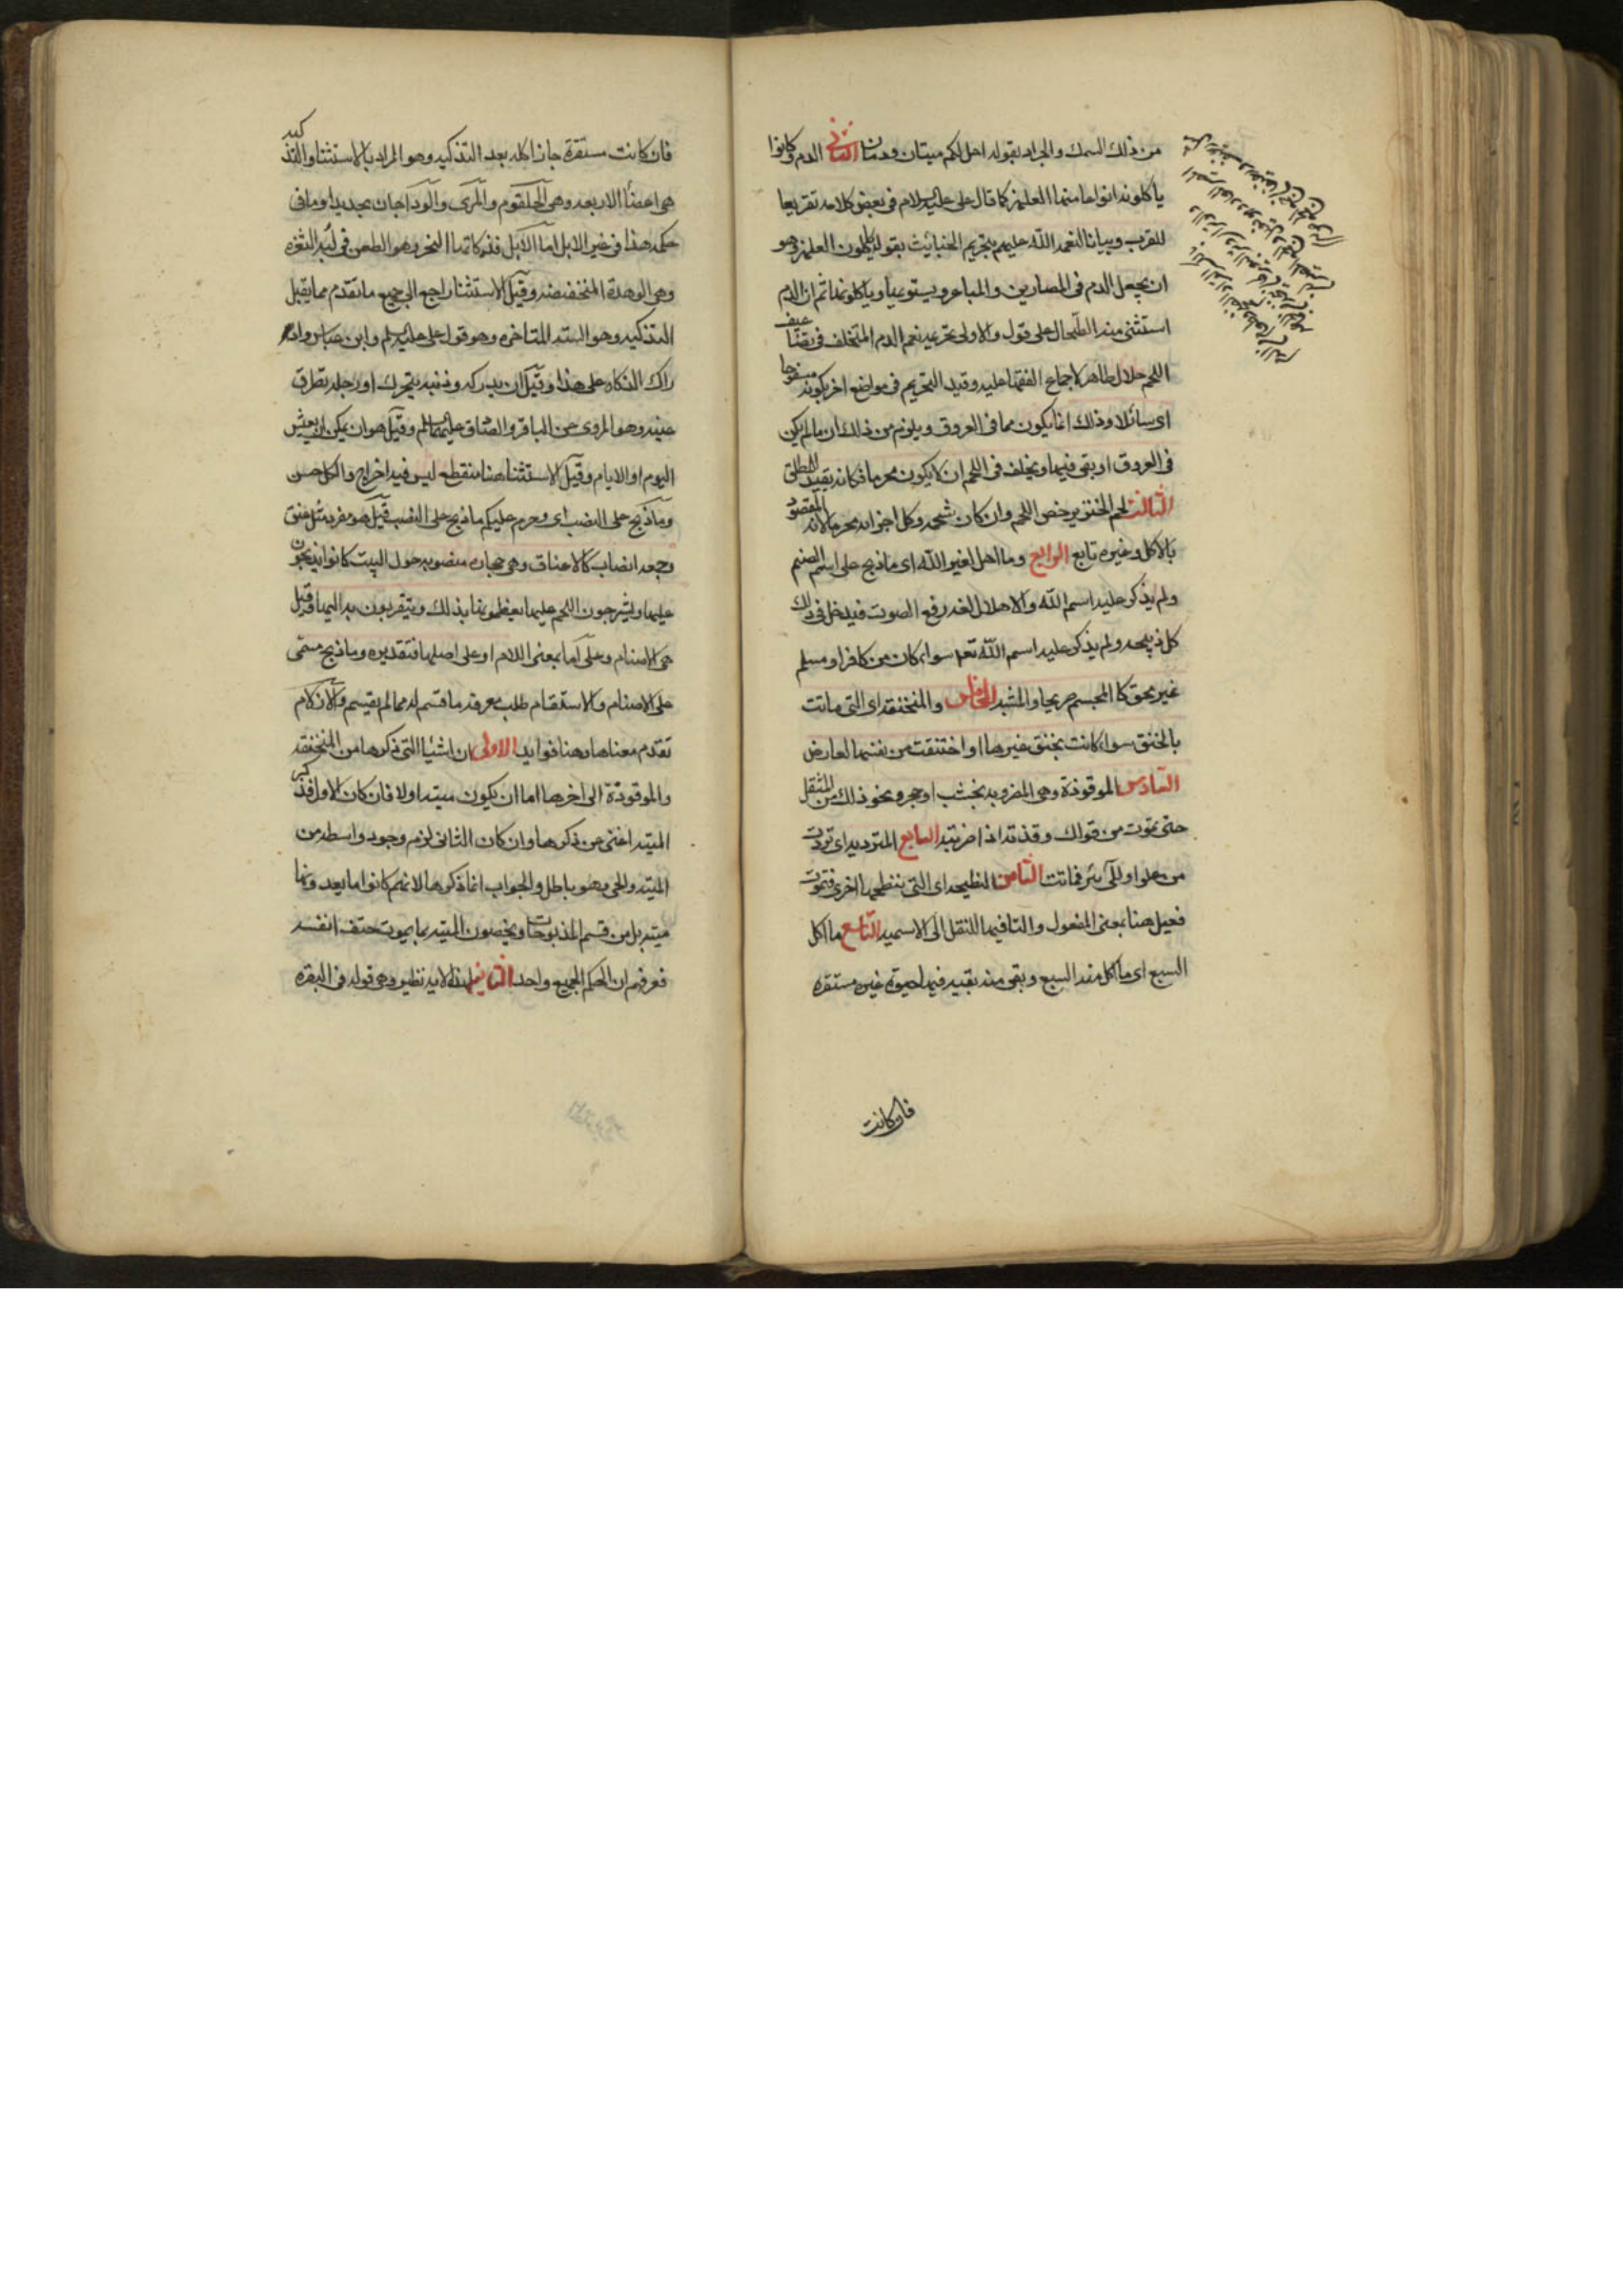 من ذلك السمك والجراد بقوله احل لكم ميتان ودمان الثاني الدم وكانوا
ياكلونه انواعا منها العلهز كما قال علي عليه السلام في بعض كلامه تقريعا
للعرب وبيانا لنعمة الله عليهم بتحريم الخبائث بقوله ياكلون العلهز وهو
ان يجعل الدم في المصارين والمباعر ويستوعبا وياكلونها ثم ان الدم
استثنى منه الطحال على قول والاولى تحريمه نعم الدم المتخلف في تضاعيف
اللحم حلال طاهر لاجماع الفقها عليه وقيد التحريم في مواضع اخر بكونه مسفوحا
اى سائلا وذلك انما يكون مما في العروق ويلزم من ذلك ان ما لم يكن
في العروق او بقى فيها وتخلف في اللحم ان لا يكون محرما فكانه تقييد المطلق
الثالث لحم الخنزير خص اللحم وان كان شحمه وكل اجزائه محرما لانه المقصود
بالاكل وغيره تابع الرابع وما اهل لغير الله اى ما ذبح على اسم الصنم
ولم يذكر عليه اسم الله والاهلال لغة رفع الصوت فيدخل في ذلك
كل ذبيحة ولم يذكر عليه اسم الله تعه سواء كان من كافر او مسلم
غير محق كالمجسم صريحا والمشبه الخامس والمنخنقة اى التي ماتت
بالخنق سواء كانت بخنق غيرها او اختنقت من نفسها لعارض
السادس الموقوذة وهي المضروبة بخشب او حجر ونحو ذلك من المثقل
حتى تموت من قولك وقذته اذا ضربته السابع المتردية اى تردت
من علو او الى بئر فماتت الثامن النطيحة اى التي تنطحها اخرى فتموت
فعيل هنا بمعنى المفعول والتا فيها للنقل الى الاسمية التاسع ما اكل
السبع اى ما اكل منه السبع وبقى منه بقية فيها حيوة غير مستقره
فان كانت
فان كانت مستقرة جاز اكله بعد التذكية وهو المراد بالاستثنا والتذكية
هي اعضا الاربعة وهي الحلقوم والمرى والودجان بحديد او ما في
حكمه هذا في غير الابل اما الابل فذكاتها النحر وهو الطعن في لبة الثغرة
وهي الوهدة المنخفضة وقيل الاستثنا راجع الى جميع ما تقدم مما يقبل
التذكية وهو الستة المتاخره وهو قول علي عليه السلم وابن عباس واد
راك الذكاة على هذا وقيل ان يدركه وذنبه يتحرك او رجله تطرق
عينه وهو المروى عن الباقر والصادق عليهما السلم وقيل هو ان يمكن ان يعيش
اليوم او الايام وقيل الاستثنا هنا منقطع ليس فيه اخراج والكل حسن
وما ذبح على النصب اى وحرم عليكم ما ذبح على النصب قيل هو مفرد مثل عنق
وجمعه انصاب كالاعناق وهي حجارة منصوبة حول البيت كانوا يذبحون
عليها ويشرحون اللحم عليها يعظمونها بذلك ويتقربون به اليها وقيل
هي الاصنام وعلى اما بمعنى اللام او على اصلها فتقديره وما ذبح مسمى
على الاصنام والاستقسام طلب معرفة ما قسم له مما لم يقسم والازلام
تقدم معناها وهنا فوايد الاولى ان اشيا التي ذكرها من المنخنقة
والموقوذة الى اخرها اما ان يكون ميتة او لا فان كان الاول فذكر
الميتة اغنى عن ذكرها وان كان الثانى لزم وجود واسطة من
الميتة والحي وهو باطل والجواب انما ذكرها لانهم كانوا ما يعدونها
ميتة بل من قسم المذبوحات ويخصون الميتة بما يموت حتف انفسه
فعرفهم ان الحكم للجميع واحد الثانية لهذه الاية نظير وهى قوله في البقره